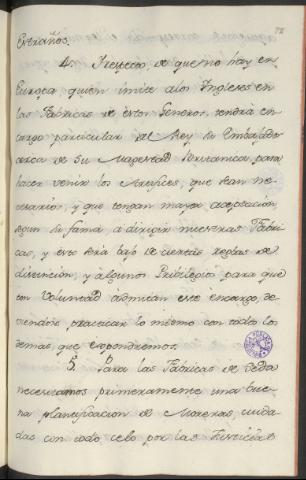 Extraños.
4. Respecto, de que no hay en
Europa quien imite alos Ingleses en
las Fabricas de estos Generos, tendrá en-
cargo particular del Rey su Embaxador
cerca de su Magestad Britanica, para
hacer venir los Artifices, que sean ne-
cesarios, y que tengan mayor aceptacion,
segun su fama à dirigir nuestras Fabri-
cas, y éste será bajo de ciertas reglas de
distincion, y algunos Privilegios para que
con Voluntad admitan este encargo, de-
viendose practicar lo mismo con todos los
demas que expondremos.
5. Para las Fabricas de Seda
necesitamos primeramente una bue-
na planificacion de Moreras, cuida-
das con todo celo por las Justicias